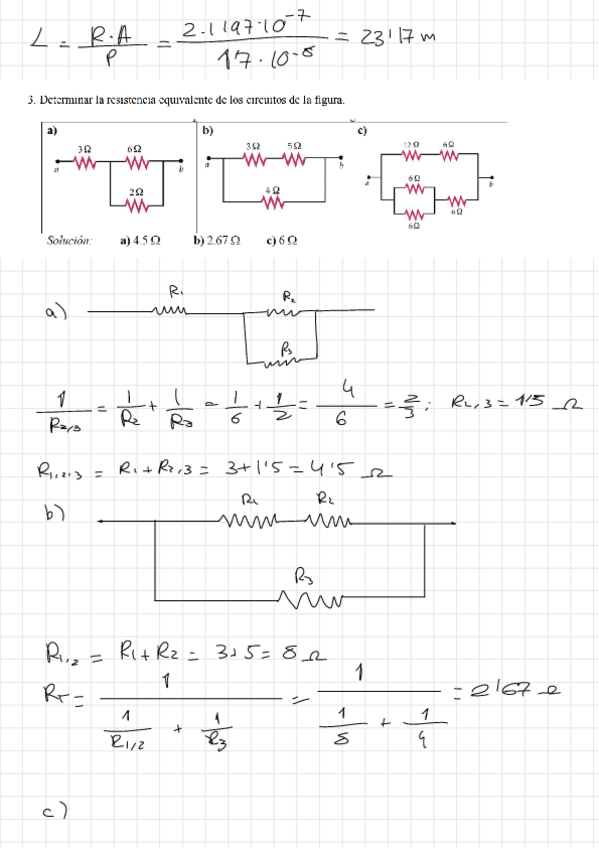 L = R·A / ρ = 2.1197·10^-7 / 17·10^-8 = 23'17 m
3. Determinar la resistencia equivalente de los circuitos de la figura.
a) b) c)
3Ω 6Ω 3Ω 5Ω 12Ω 6Ω
a b a b a b
2Ω 4Ω 6Ω 6Ω
6Ω
Solución: a) 4.5 Ω b) 2.67 Ω c) 6 Ω
a) R1 R2
R3
1/R2,3 = 1/R2 + 1/R3 = 1/6 + 1/2 = 4/6 = 2/3; R2,3 = 1'5 Ω
R1,2,3 = R1 + R2,3 = 3+1'5 = 4'5 Ω
b) R1 R2
R3
R1,2 = R1 + R2 = 3+5 = 8 Ω
RT = 1 / (1/R1,2 + 1/R3) = 1 / (1/8 + 1/4) = 2'67 Ω
c)